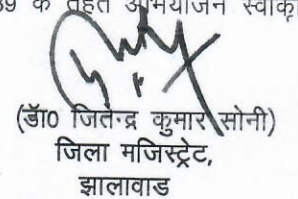 39 के तहत अभियोजन स्वीकृ
(डॉ0 जितेन्द्र कुमार सोनी)
जिला मजिस्ट्रेट,
झालावाड